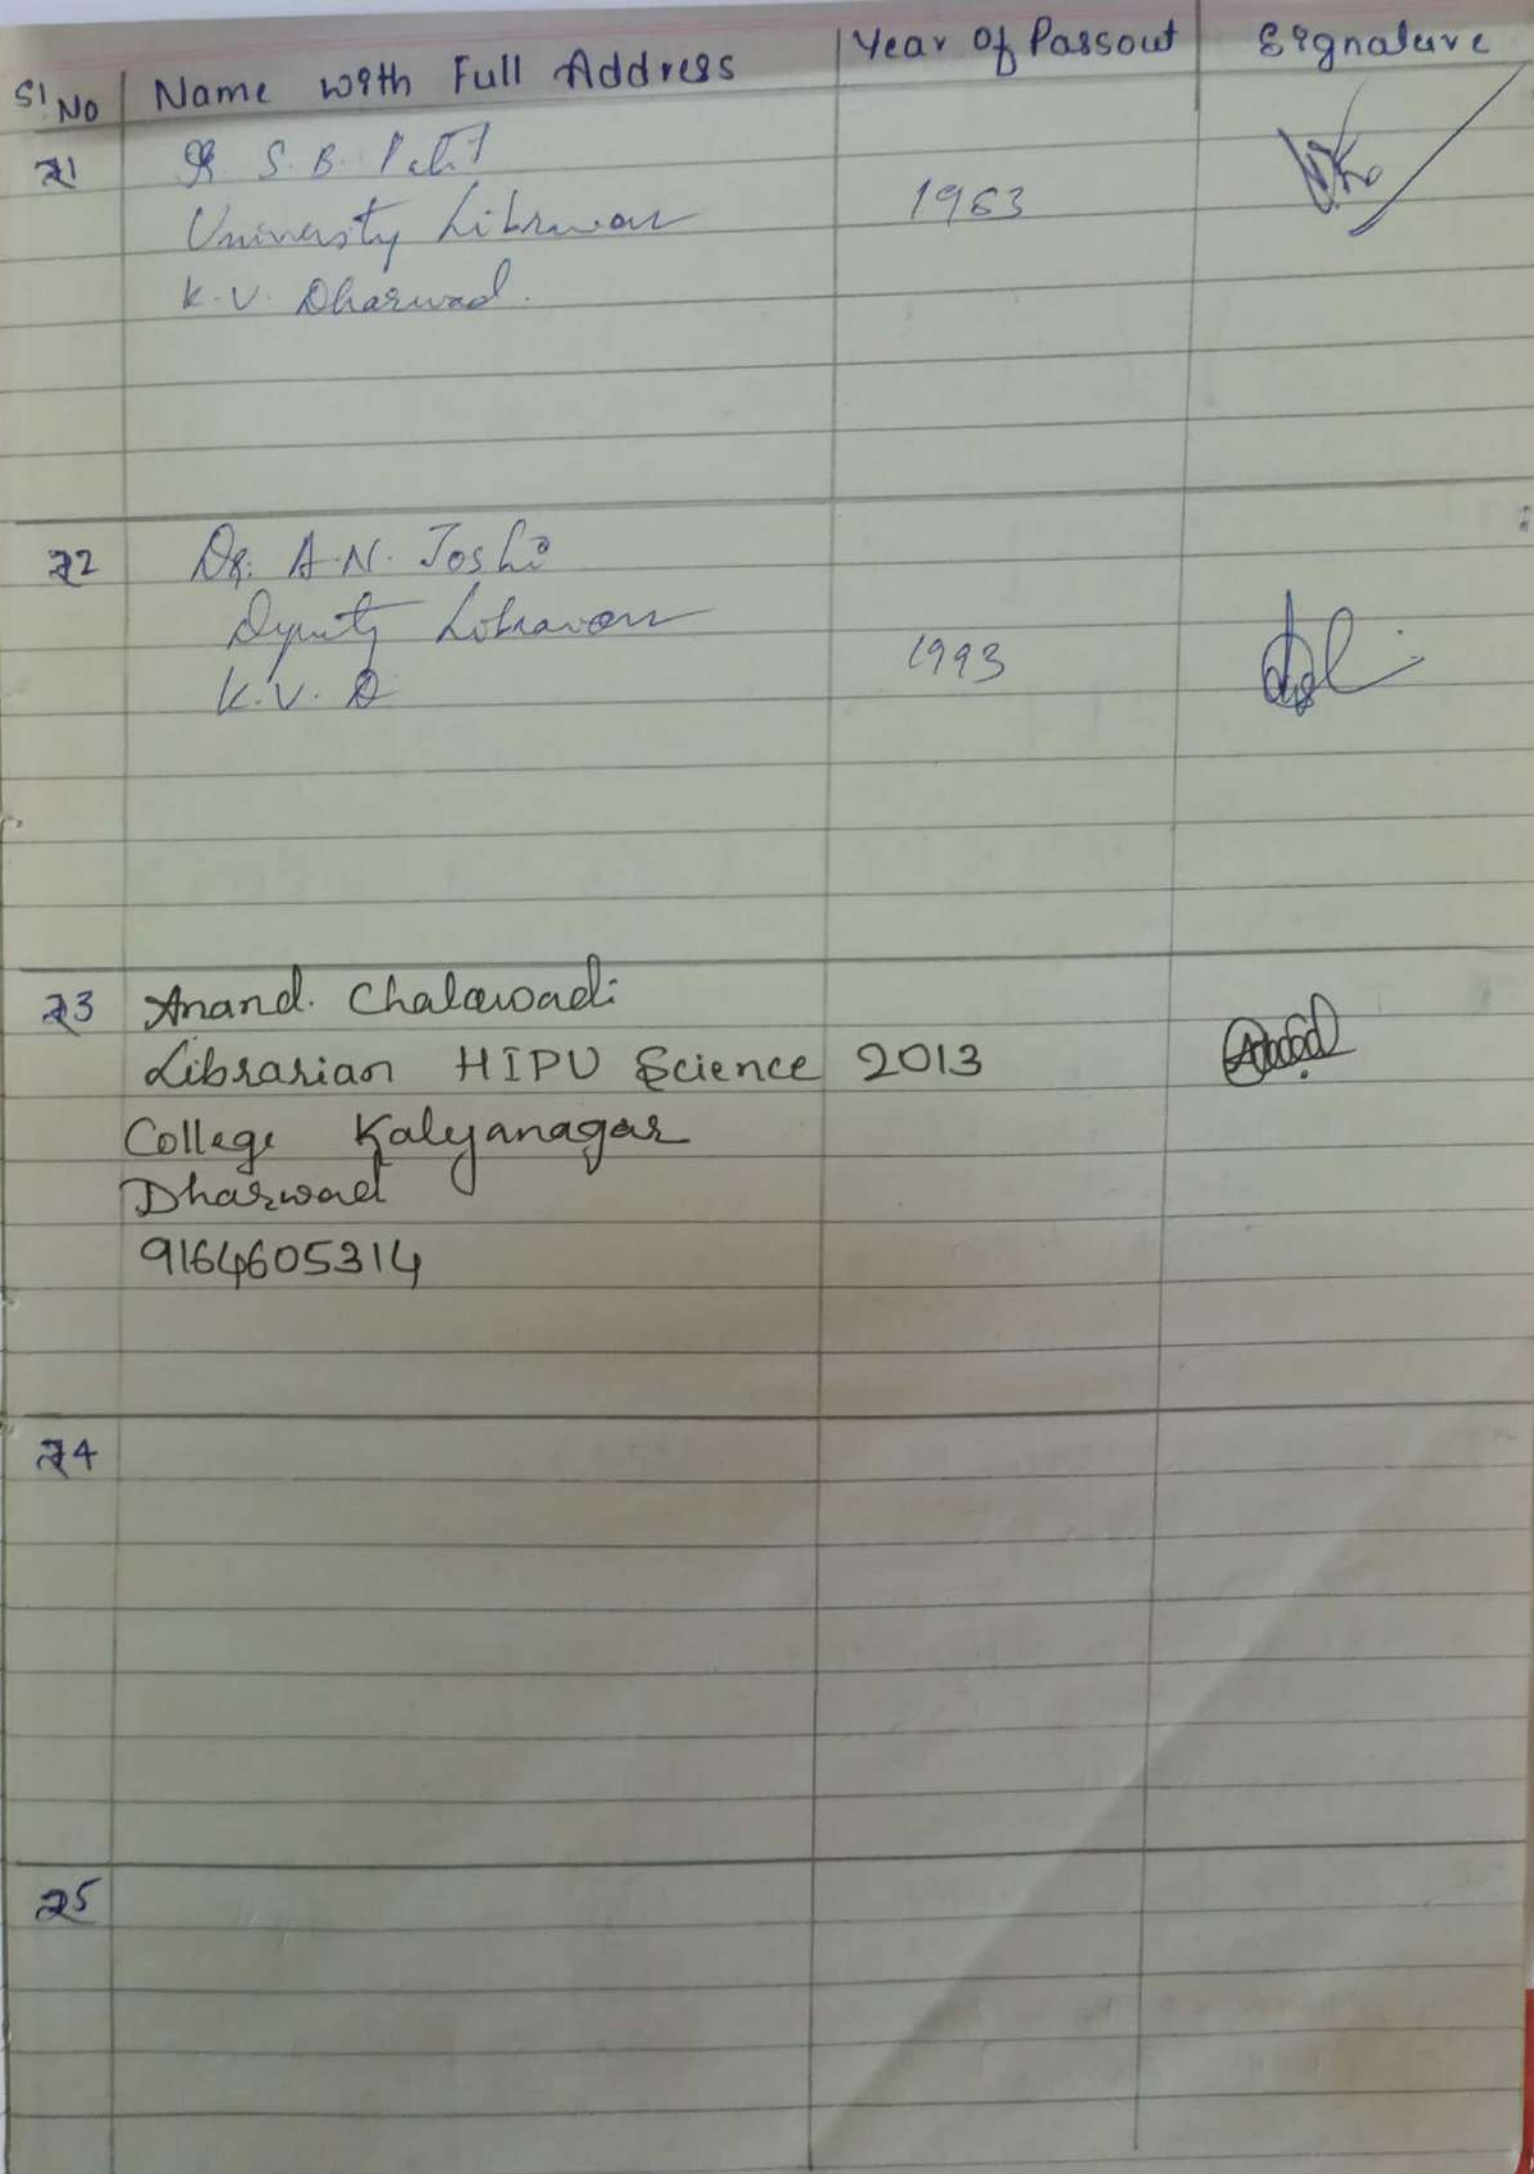 Sl No Name with Full Address Year Of Passout Signature
21 S. B. Patil
University Librarian 1983
K.U. Dharwad.
22 Dr. A.N. Joshi
Deputy Librarian 1993
K.U.D
23 Anand. Chalawadi
Librarian HIPU Science 2013
College Kalyanagar
Dharwad
9164605314
24
25